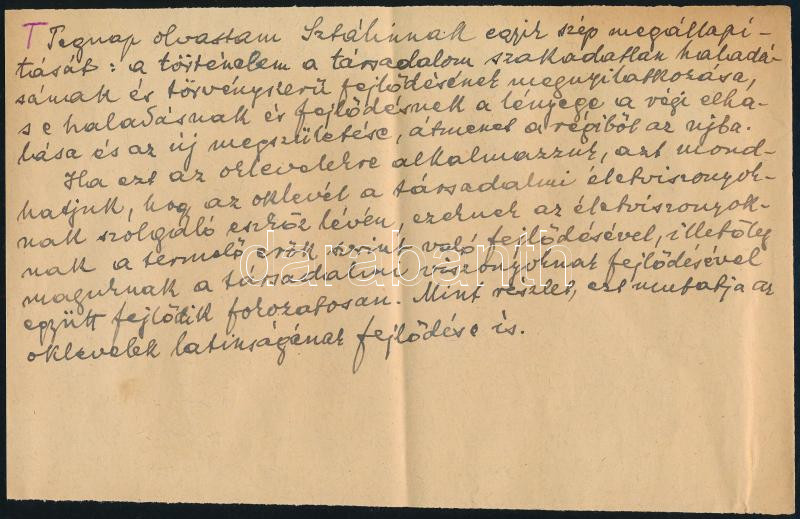 T Tegnap olvastam Sztálinnak egyik szép megállapí-
tását: a történelem a társadalom szakadatlan haladá-
sának és törvényszerű fejlődésének megnyilatkozása,
s e haladásnak és fejlődésnek a lényege a régi elha-
lása és az új megszületése, átmenet a régiből az újba.
Ha ezt az oklevelekre alkalmazzuk, azt mond-
hatjuk, hog az oklevél a társadalmi életviszonyok-
nak szolgáló eszköz lévén, ezeknek az életviszonyok-
nak a termelő erők szerint való fejlődésével, illetőleg
maguknak a társadalmi viszonyoknak fejlődésével
együtt fejlődik fokozatosan. Mint részlet, ezt mutatja az
oklevelek latinságának fejlődése is.
darabanth